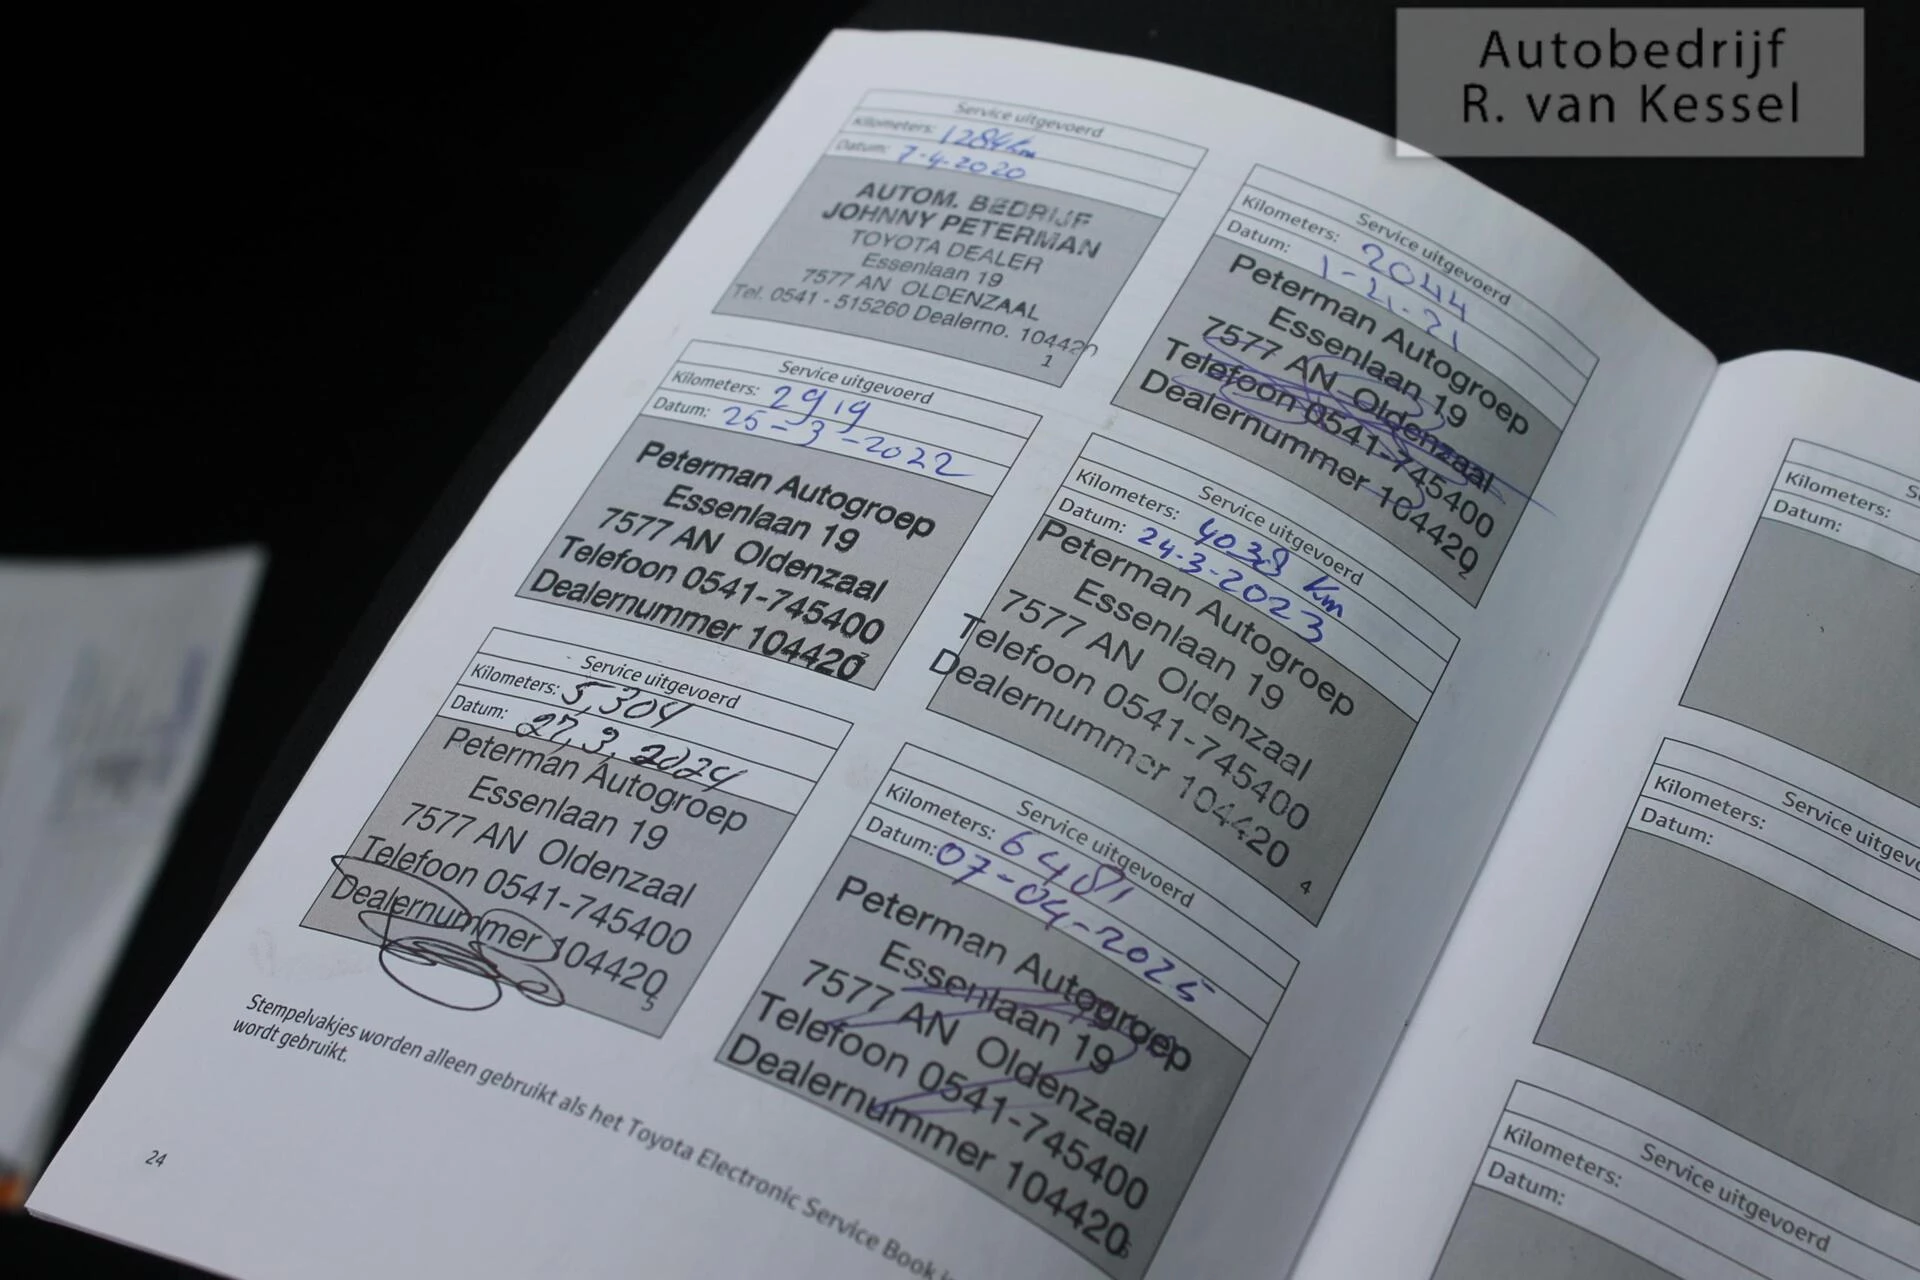 Autobedrijf
R. van Kessel
Service uitgevoerd
Kilometers: 1284 km
Datum: 7-4-2020
AUTOM. BEDRIJF
JOHNNY PETERMAN
TOYOTA DEALER
Essenlaan 19
7577 AN OLDENZAAL
Tel. 0541 - 515260 Dealerno. 104420
1
Service uitgevoerd
Kilometers: 2044
Datum: 1-21-21
Peterman Autogroep
Essenlaan 19
7577 AN Oldenzaal
Telefoon 0541-745400
Dealernummer 104420
2
Service uitgevoerd
Kilometers: 2919
Datum: 25-3-2022
Peterman Autogroep
Essenlaan 19
7577 AN Oldenzaal
Telefoon 0541-745400
Dealernummer 104420
Service uitgevoerd
Kilometers: 4038 km
Datum: 24-3-2023
Peterman Autogroep
Essenlaan 19
7577 AN Oldenzaal
Telefoon 0541-745400
Dealernummer 104420
4
Service uitgevoerd
Kilometers: 5,304
Datum: 27,3,2024
Peterman Autogroep
Essenlaan 19
7577 AN Oldenzaal
Telefoon 0541-745400
Dealernummer 104420
5
Service uitgevoerd
Kilometers: 6481
Datum: 07-04-2025
Peterman Autogroep
Essenlaan 19
7577 AN Oldenzaal
Telefoon 0541-745400
Dealernummer 104420
6
Stempelvakjes worden alleen gebruikt als het Toyota Electronic Service Book
wordt gebruikt.
24
Kilometers:
Datum:
Service uitgevo
Kilometers:
Datum:
Service uitgevoerd
Kilometers:
Datum: